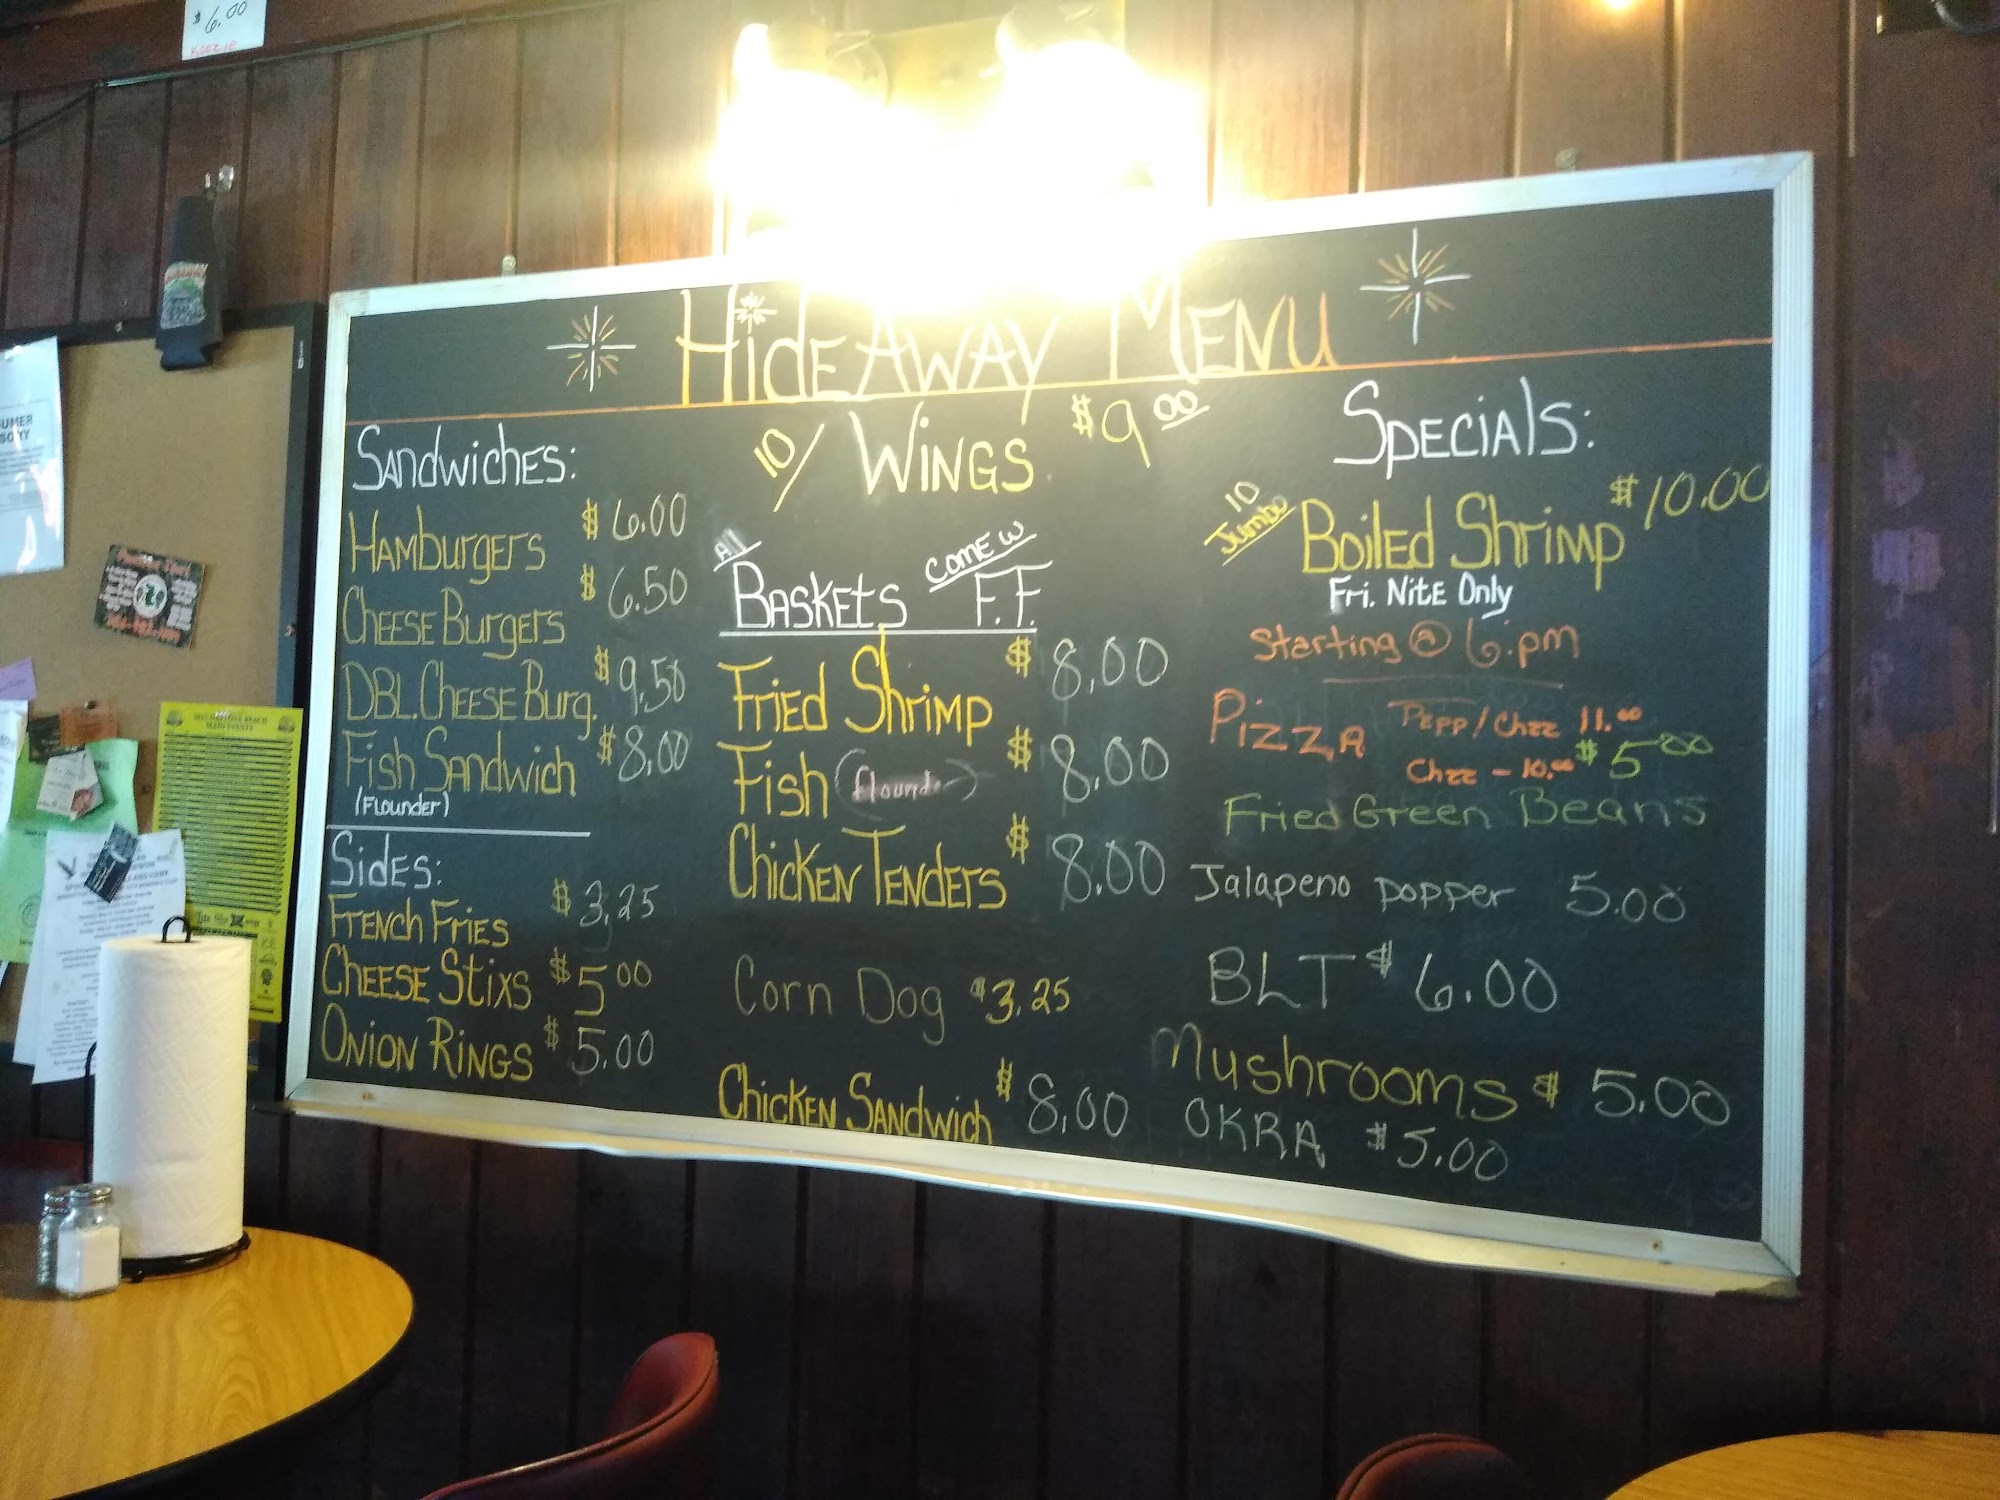 $6.00
KOOZIE
HIDEAWAY MENU
SANdwiCHES:
HAMburgers $6.00
CHEESE Burgers $6.50
DBL. CHEESE Burg. $9.50
Fish SANdwich $8.00
(Flounder)
SidES:
FRENCH FRiES $3.25
CHEESE STixs $5.00
ONiON RiNGS $5.00
10/ WiNGS $9.00
All BASKETS COME W F.F.
FRiEd SHRiMP $8.00
Fish $8.00
CHiCKEN TENdERS $8.00
Corn Dog $3.25
CHiCKEN SANdwich $8.00
SpECiAls:
10 Jumbo BoilEd ShriMp $10.00
Fri. NitE Only
Starting @ 6:pm
PiZZA PEPP/Chzz 11.00
Chzz - 10.00
Fried Green Beans $5.00
Jalapeno popper 5.00
BLT $6.00
Mushrooms $5.00
OKRA $5.00